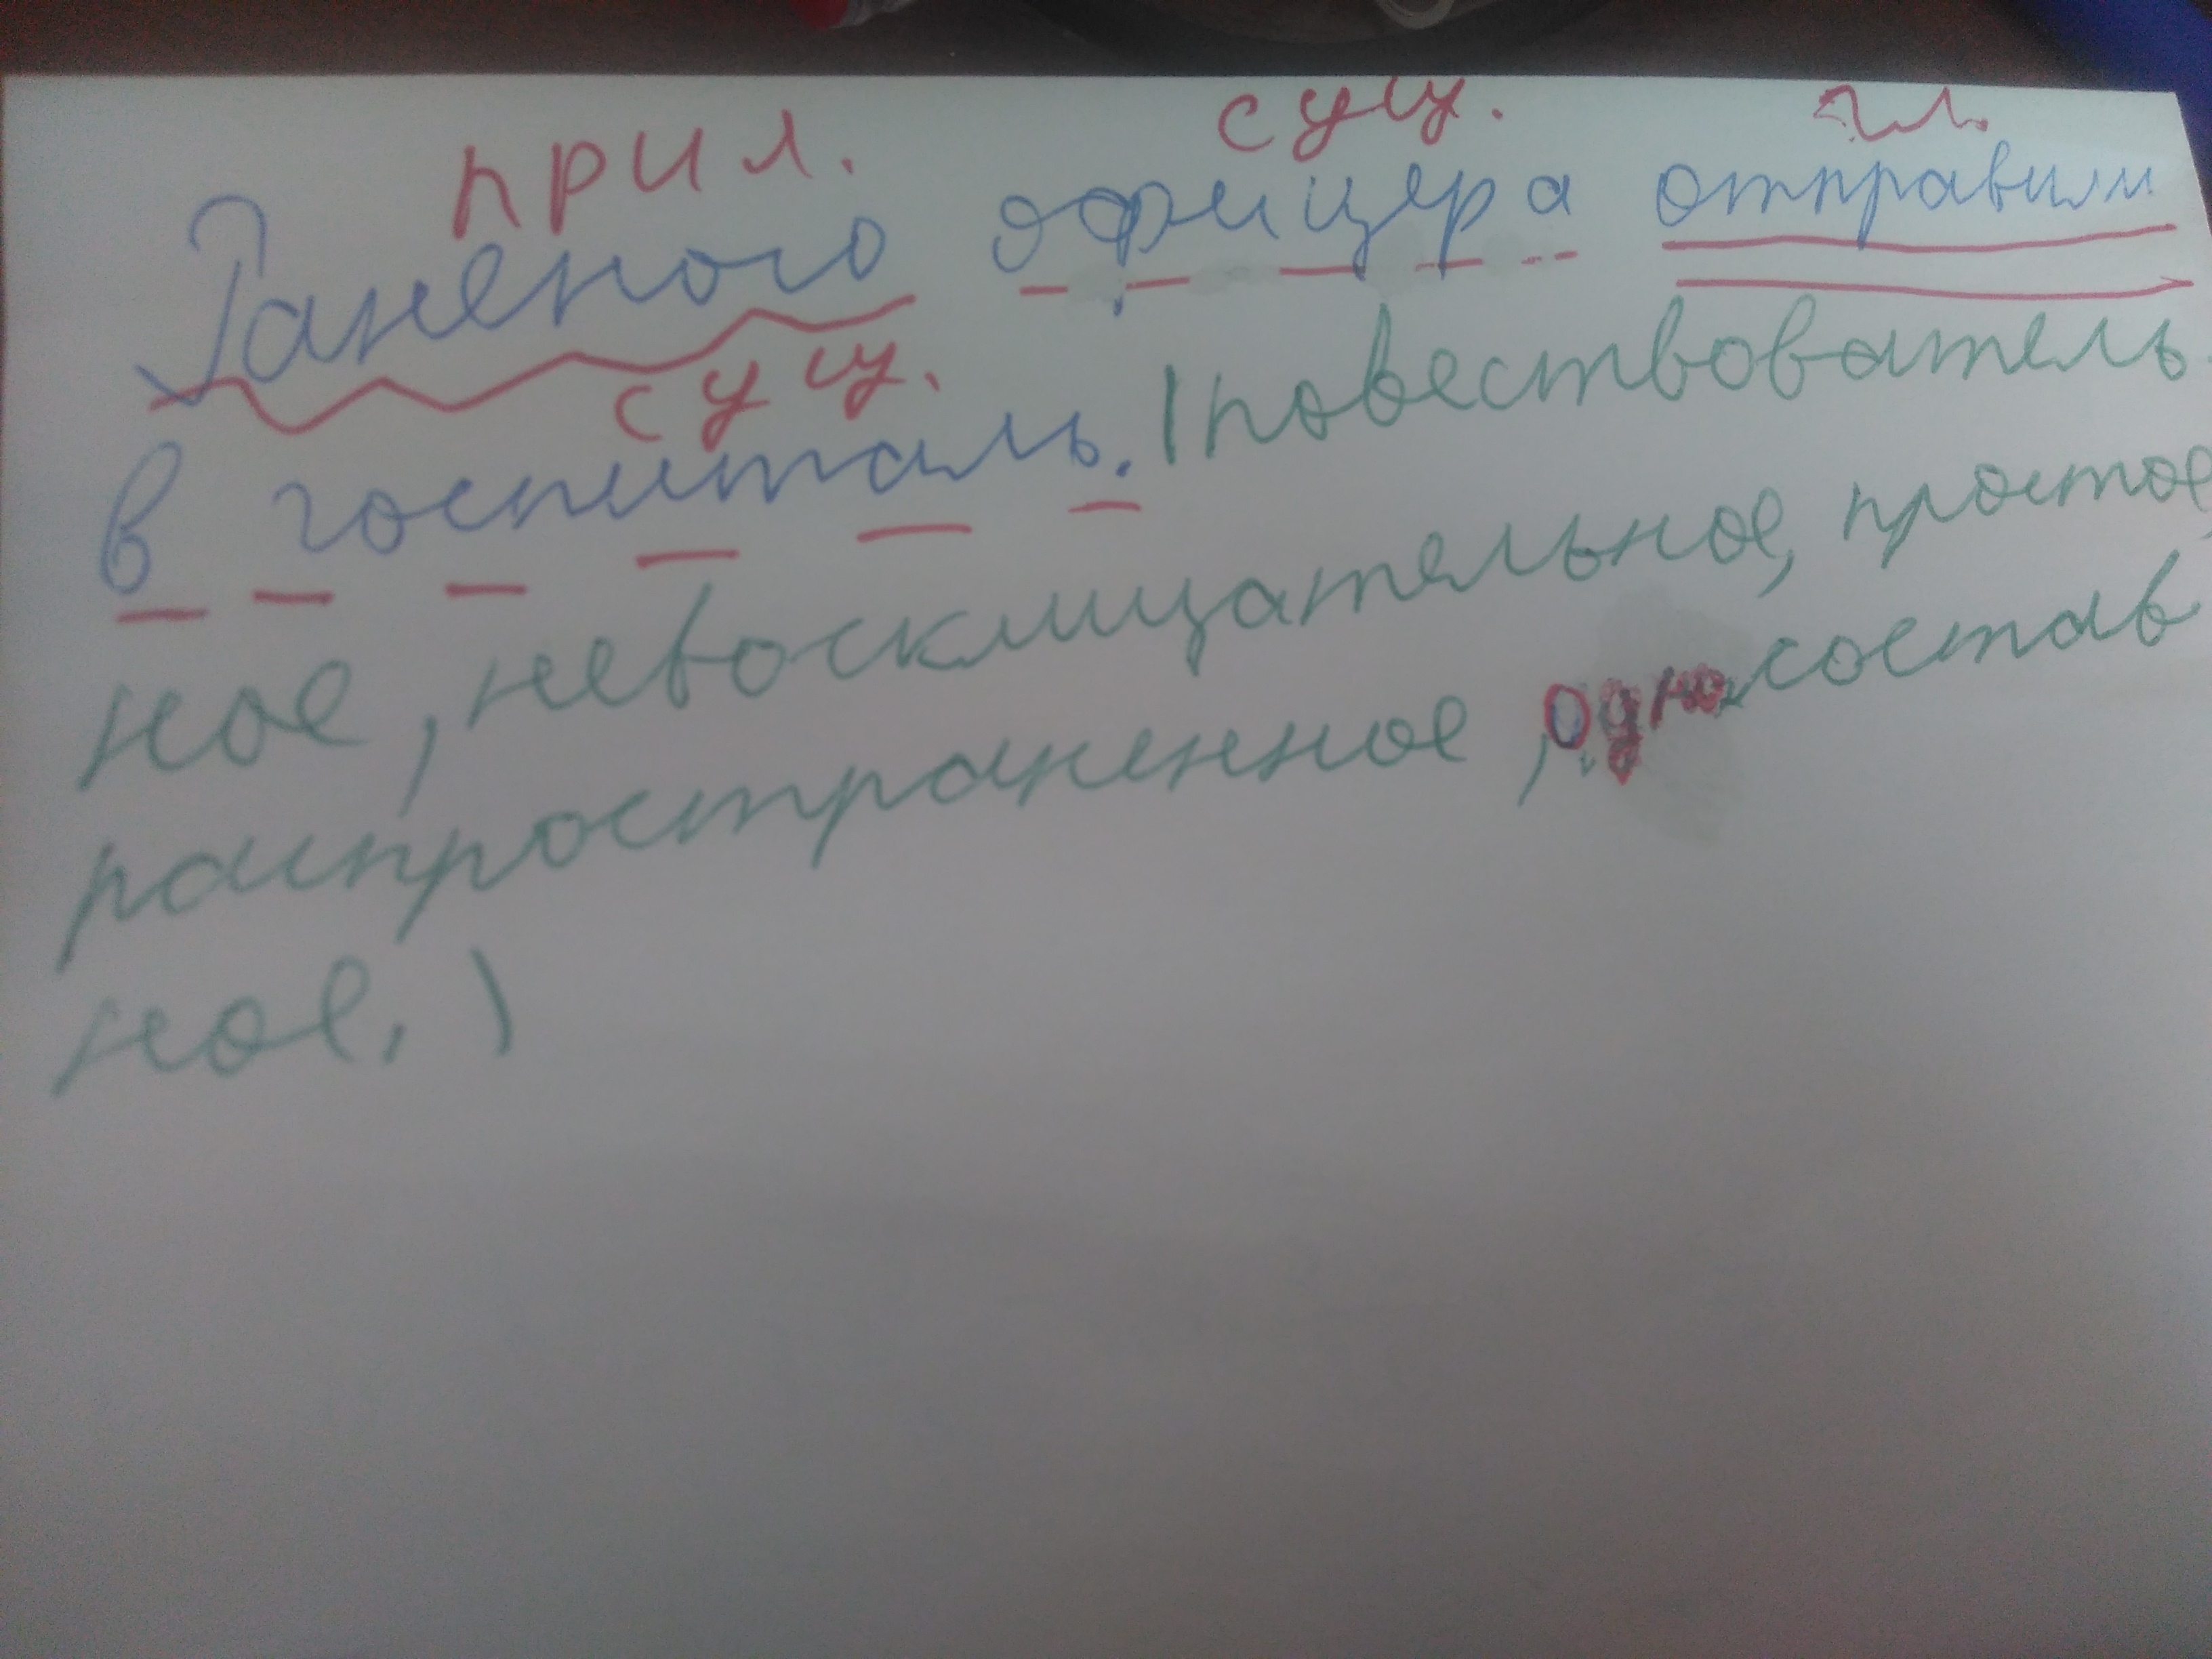 прил. сущ. гл.
Раненого офицера отправили
сущ.
в госпиталь. (повествователь
ное, невосклицательное, простое,
распространенное, односостав
ное.)